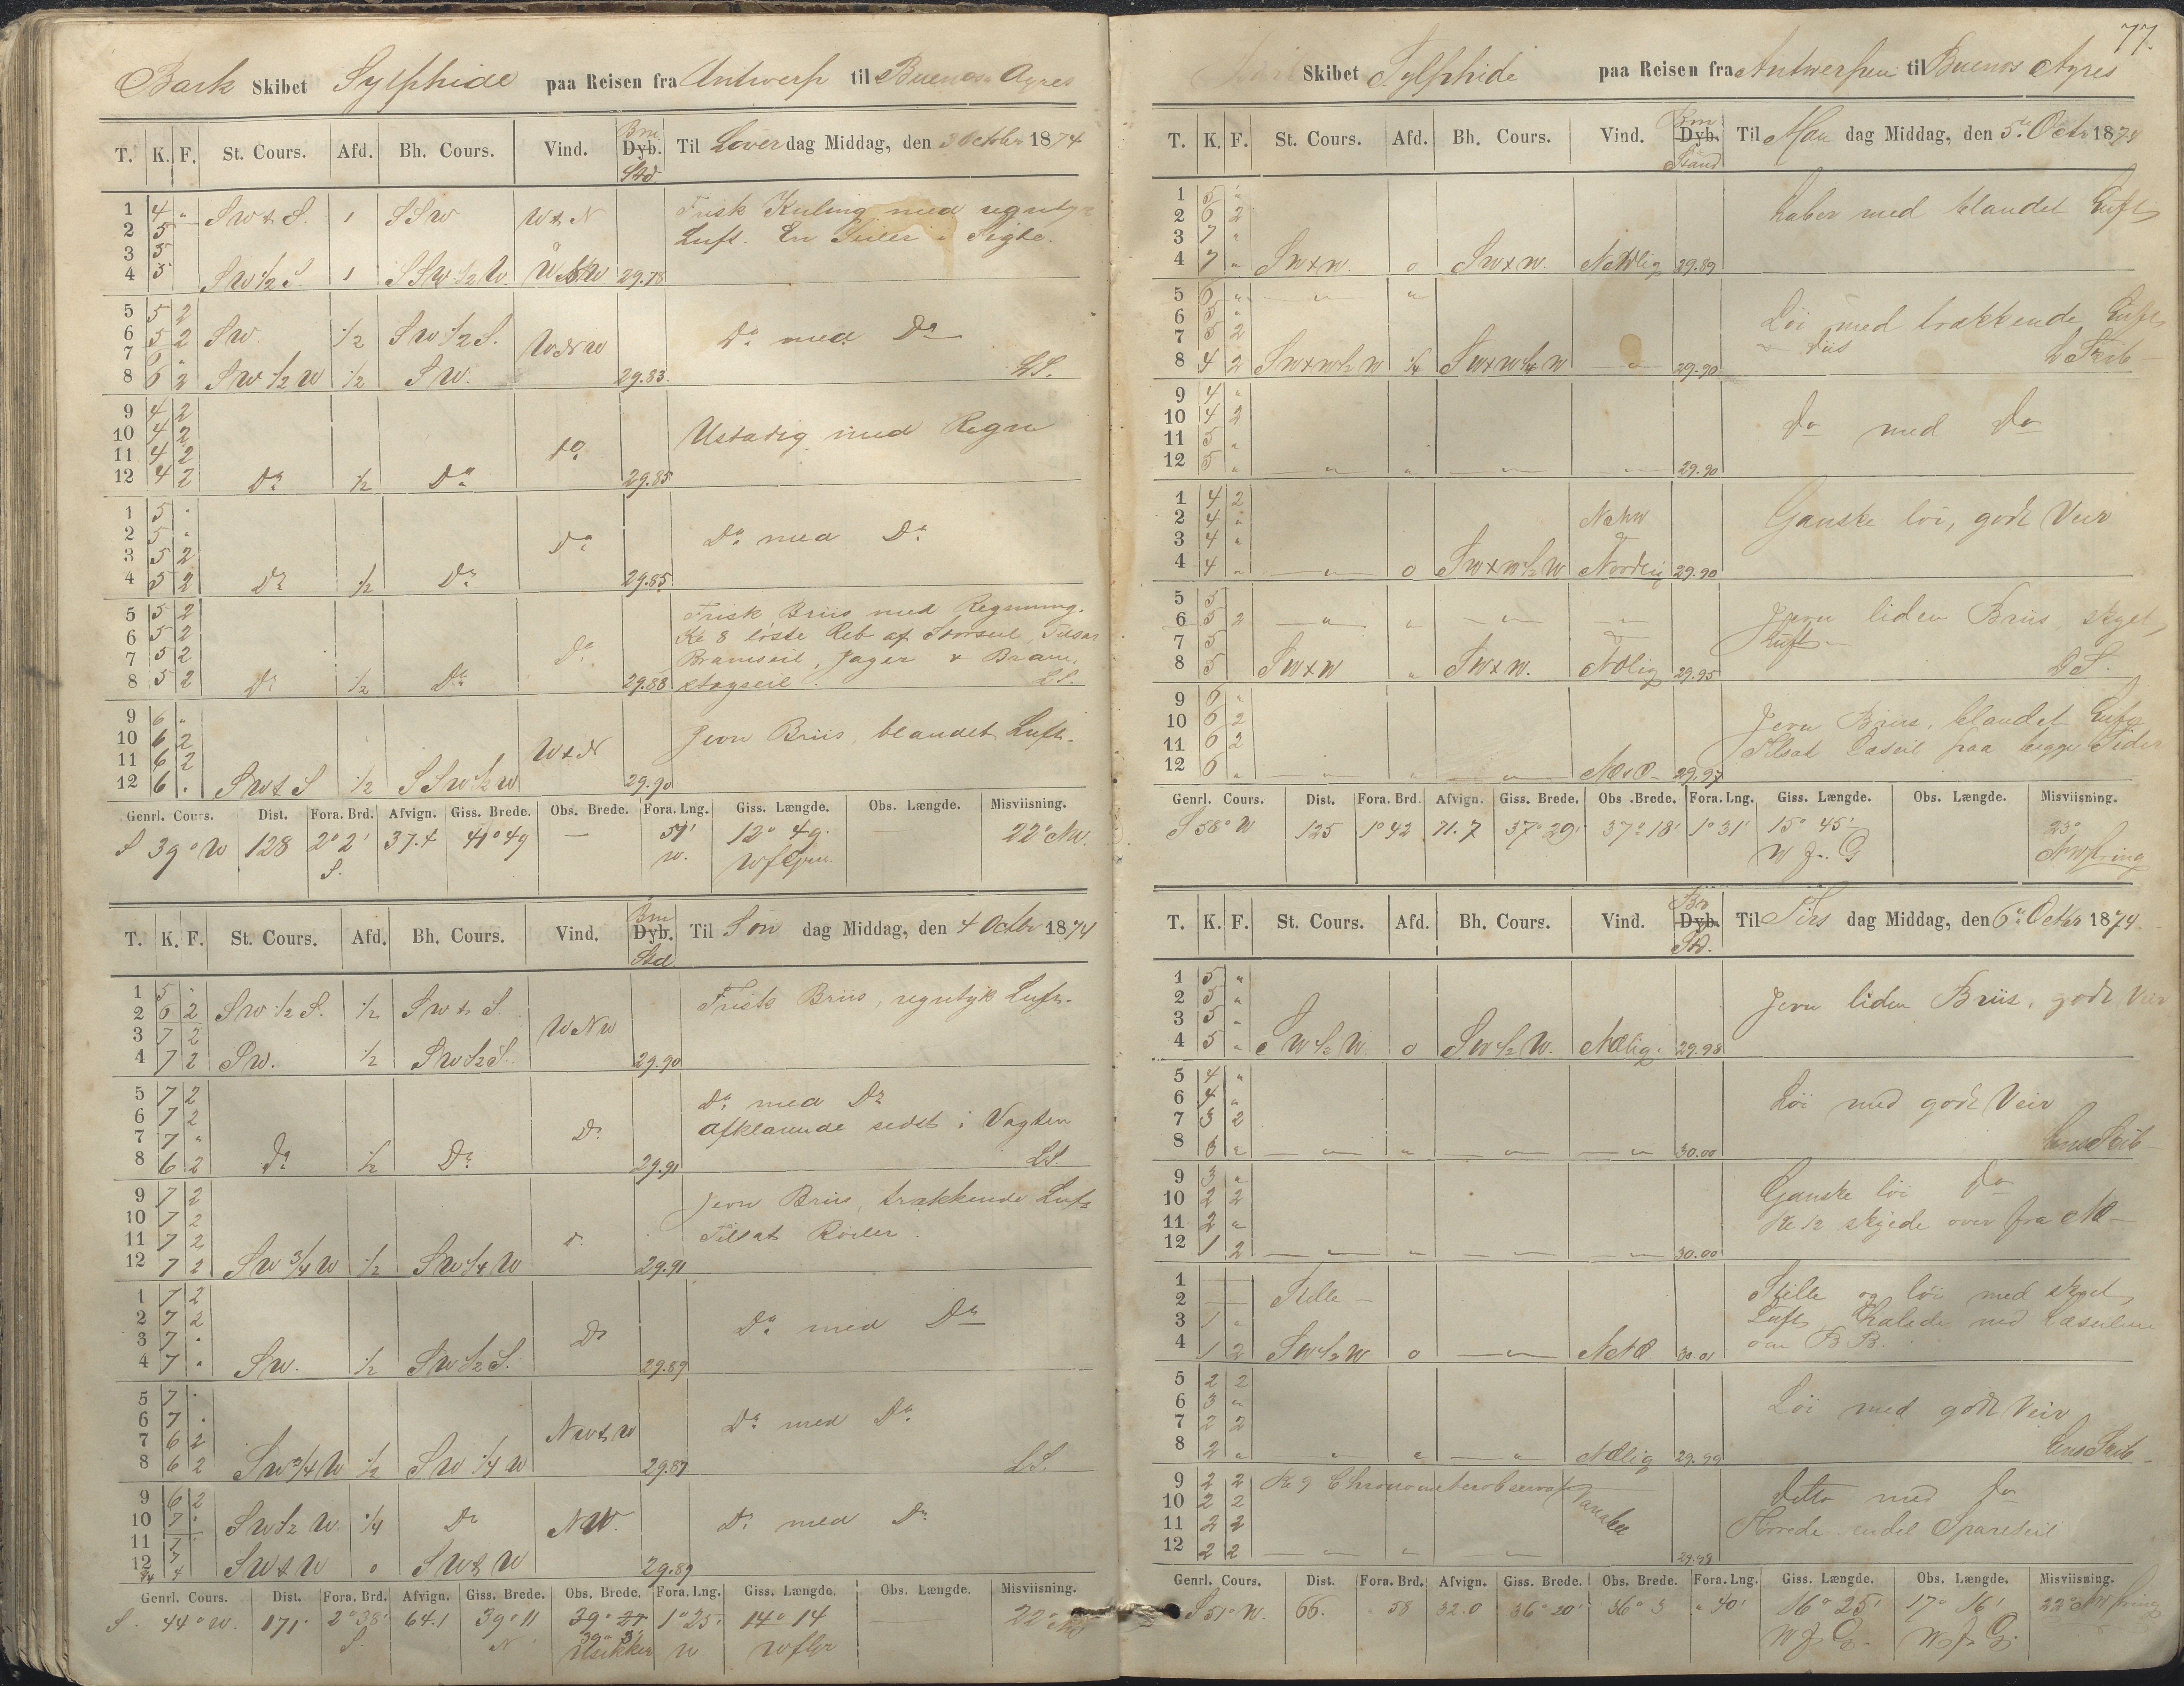 Bark Skibet Sylphide paa Reisen fra Antwerp til Buenos Ayres
T. K. F. St. Cours. Afd. Bh. Cours. Vind. Bm. Dyb. Std Til Löverdag Middag, den 3 Octbr 1874
1 4 " SWtS. 1 SSW WtN Frisk Kuling med regntyk
2 5 Luft. En Seiler i Sigte.
3 5
4 5 SW½S. 1 SSW½W. 29.78
5 5 2
6 5 2 SW. ½ SW½S. WNW Do med Do
7 6 "
8 6 2 SW½W ½ SW. 29.83 LS.
9 4 2
10 4 2 Ustadig med Regn
11 4 2 do
12 4 2 Do ½ Do 29.85
1 5 "
2 5 " Do Do med Do
3 5 2
4 5 2 Do ½ Do 29.85
5 5 2 Frisk Briis med Regning.
6 5 2 Kl 8 löste Reb af Storseil, Tilsat
7 5 2 Do Bramseil, Jager & Bram
8 5 2 Do ½ Do 29.88 stagseil. LS.
9 6 "
10 6 2 Jevn Briis, blandet Luft.
11 6 2 WtN
12 6 . SWtS ½ SSW½W 29.90
Genrl. Cours. Dist. Fora. Brd. Afvign. Giss. Brede. Obs. Brede. Fora. Lng. Giss. Længde. Obs. Længde. Misviisning.
S 39° W 128 2° 2' S. 37.4 41° 49 — 51' W. 12° 49. WfGrw. 22° NW.
T. K. F. St. Cours. Afd. Bh. Cours. Vind. Bm Dyb. Std Til Søn dag Middag, den 4 Octbr 1874
1 5 . Frisk Briis, regntyk Luft.
2 6 2 SW½S. ½ SWtS
3 7 2 WNW
4 7 2 SW. ½ SW½S. 29.90
5 7 2 Do med Do
6 7 2 afklarende sidst i Vagten
7 7 " Do
8 6 2 Do ½ Do 29.91 LS.
9 7 2 Jevn Briis, trækkende Luft
10 7 2 Tilsat Röiler.
11 7 2 do
12 7 2 SW¾W ½ SW¼W 29.91
1 7 2
2 7 2 Do med Do
3 7 . Do
4 7 . SW. ½ SW½S. 29.89
5 7 .
6 7 . NWtW Do med Do
7 6 2
8 6 2 SW¾W ½ SW¼W 29.87 LS.
9 6 2
10 7 . SW½W. ¼ Do NW. Do med Do
11 7
12 7 SWtW 0 SWtW 29.89
Genrl. Cours. Dist. Fora. Brd. Afvign. Giss. Brede. Obs. Brede. Fora. Lng. Giss. Længde. Obs. Længde. Misviisning.
S. 44° W. 171. 2° 38' S. 64.1 39° 11 N 39° 21 39° 3' Usikker 1° 25' W 14° 14 WfGr 22° NW
77.
Bark Skibet Sylphide paa Reisen fra Antwerpen til Buenos Ayres
T. K. F. St. Cours. Afd. Bh. Cours. Vind. Bm Dyb. Stand Til Mandag Middag, den 5te Octr 1874
1 5 " Laber med blandet Luft
2 6 2
3 7 "
4 7 " SWxW. 0 SWxW. 29.89
5 6 " — " — "
6 5 " Löi med trækkende Luft
7 5 2 diis
8 4 2 SWxW½W ¼ SWxW¼W 29.90 L Skib
9 4 "
10 4 2 do med do
11 5 "
12 5 " — " — " — " — — " — 29.90
1 4 2
2 4 " Ganske löi, godt Veir
3 4 "
4 4 " — " — 0 SWxW½W Nordlig 29.90
5 5
6 5 2 — " — " — " — — " — Jevn liden Briis, skyet
7 5 Luft —
8 5 SWxW " SWxW. NOlig 29.95 LS.
9 6 "
10 6 2 Jevn Briis, blandet Luft
11 6 2 Tilsat Læseil paa begge Sider
12 6 " — " — " — " — 29.97
Genrl. Cours. Dist. Fora. Brd. Afvign. Giss. Brede. Obs. Brede. Fora. Lng. Giss. Længde. Obs. Længde. Misviisning.
S 58° W 125 1° 42 71.7 37° 29' 37° 18' 1° 31' 15° 45' W f. G 23° NWring
T. K. F. St. Cours. Afd. Bh. Cours. Vind. Br Dyb. Std. Til Tirsdag Middag, den 6te Octbr 1874
1 5 " Jevn liden Briis, godt Veir
2 5 "
3 5 "
4 5 " SW½W. 0 SW½W. NOlig. 29.98
5 4 "
6 4 " Löi med godt Veir
7 3 2
8 3 " — " — " — " — — " — 30.00
9 3 " Ganske löi do
10 2 2 Kl 12 skyede over fra NO —
11 2 "
12 1 2 — " — " — " — — " — 30.00
1 — Stille og löi med skyet
2 — Stille — Luft, Halede ned Læseilene
3 1 " om B.B.
4 1 2 SW½W 0 — " — 30.01
5 2 2
6 3 " Löi med godt Veir
7 2 2
8 2 " " " — " — NOlig 29.99
9 2 2 Kl 9 Chronometerobservat
10 2 2 Variabel ditto med do
11 2 2 endel Spareseil
12 2 2 — " — " — " — 29.99
Genrl. Cours. Dist. Fora. Brd. Afvign. Giss. Brede. Obs. Brede. Fora. Lng. Giss. Længde. Obs. Længde. Misviisning.
S 51° W. 66. 58 32.0 36° 20' 36° 3 " 40' 16° 25' W f G. 17° 16' W f G. 22° NWring